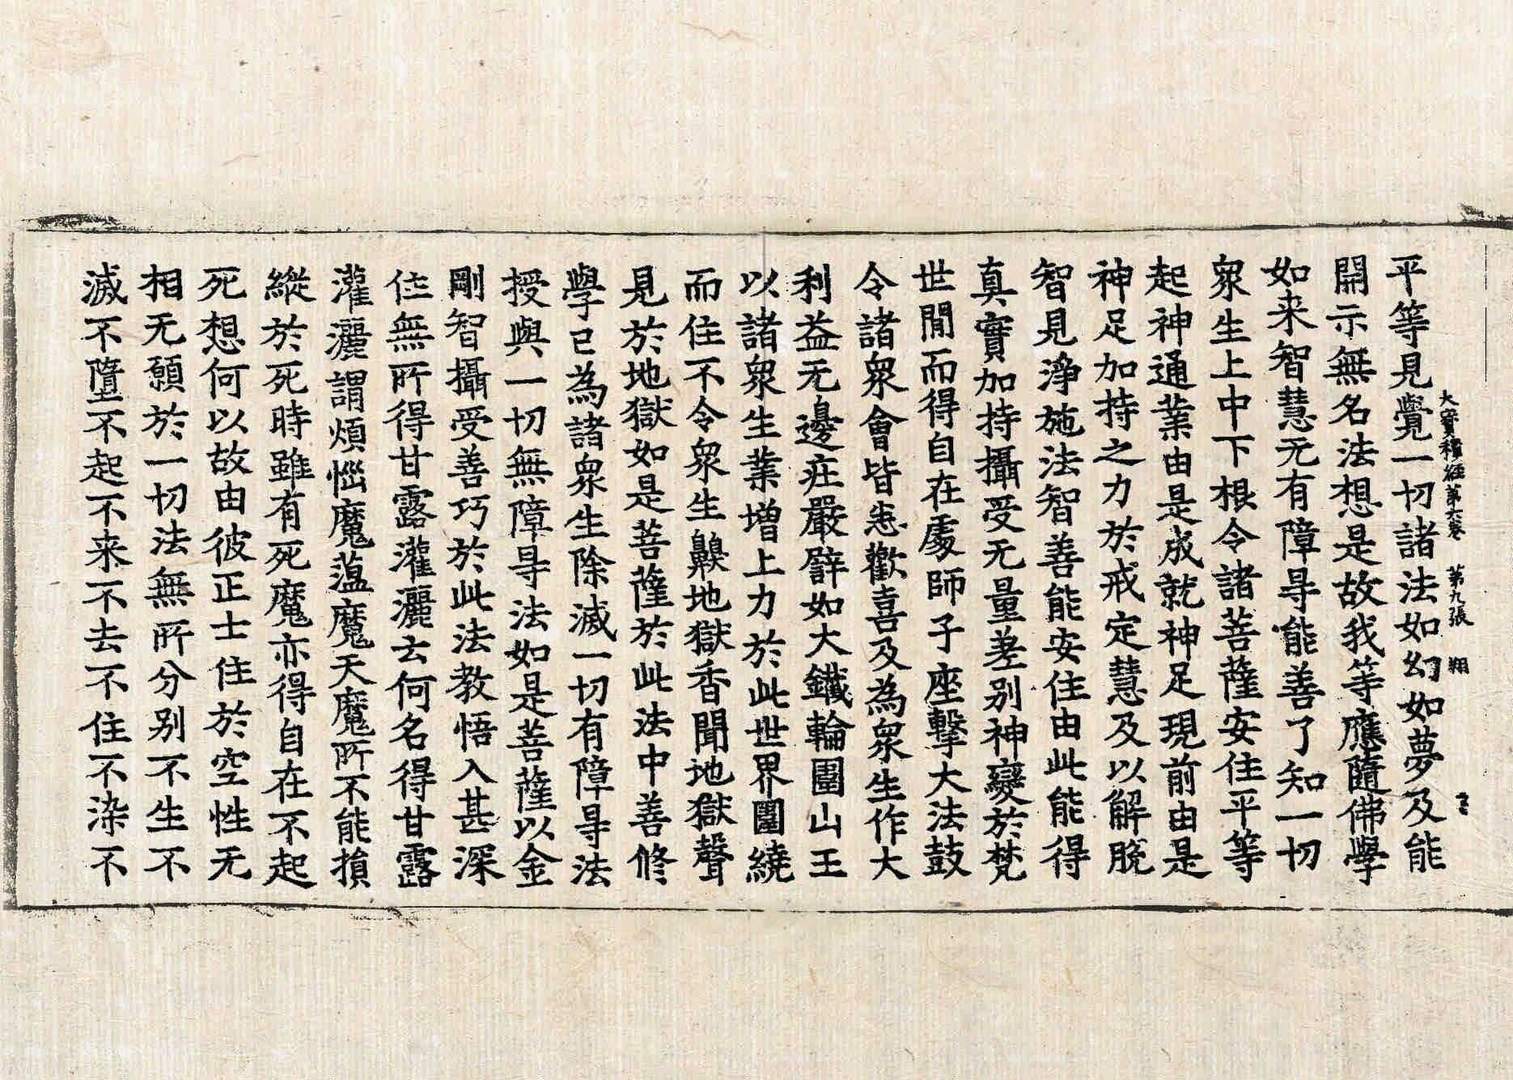 大寶積經第六卷 第九張 翔
平等見覺一切諸法如幻如夢及能
開示無名法想是故我等應隨佛學
如来智慧无有障㝵能善了知一切
衆生上中下根令諸菩薩安住平等
起神通業由是成就神足現前由是
神足加持之力於戒定慧及以解脫
智見淨施法智善能安住由此能得
真實加持攝受无量差別神變於梵
世間而得自在處師子座擊大法鼓
令諸衆會皆悉歡喜及為衆生作大
利益无邊庄嚴譬如大鐵輪圍山王
以諸衆生業增上力於此世界圍繞
而住不令衆生齅地獄香聞地獄聲
見於地獄如是菩薩於此法中善修
學已為諸衆生除滅一切有障㝵法
授與一切無障㝵法如是菩薩以金
剛智攝受善巧於此法教悟入甚深
住無所得甘露灌灑云何名得甘露
灌灑謂煩惱魔蘊魔天魔所不能損
縱於死時雖有死魔亦得自在不起
死想何以故由彼正士住於空性无
相无願於一切法無所分别不生不
滅不墮不起不来不去不住不染不